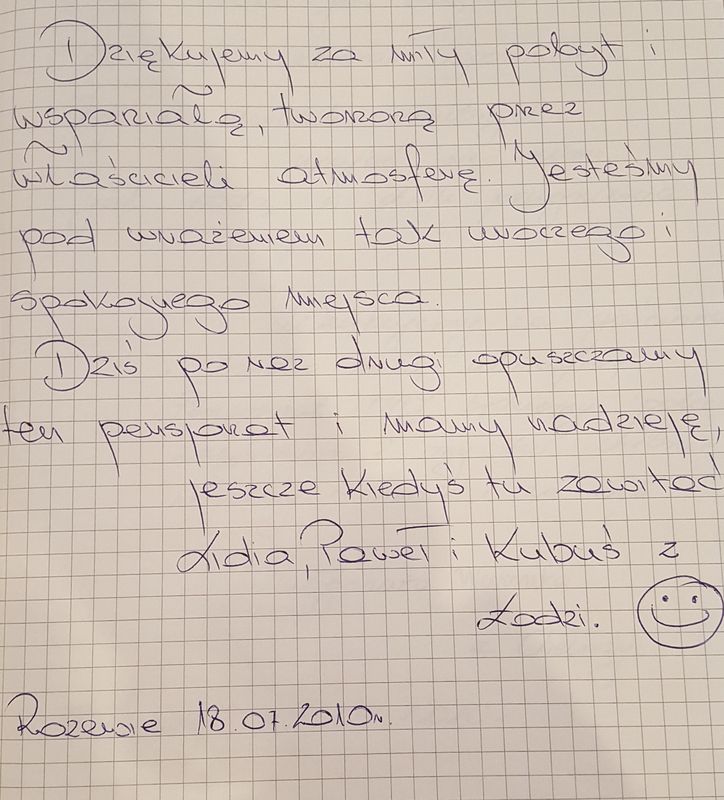 Dziękujemy za miły pobyt i
wspaniałą, tworzoną przez
właścicieli atmosferę. Jesteśmy
pod wrażeniem tak uroczego i
spokojnego miejsca.
Dziś po raz drugi opuszczamy
ten pensjonat i mamy nadzieję,
jeszcze kiedyś tu zawitać
Lidia, Paweł i Kubuś z
Łodzi.
Rozewie 18.07.2010r.